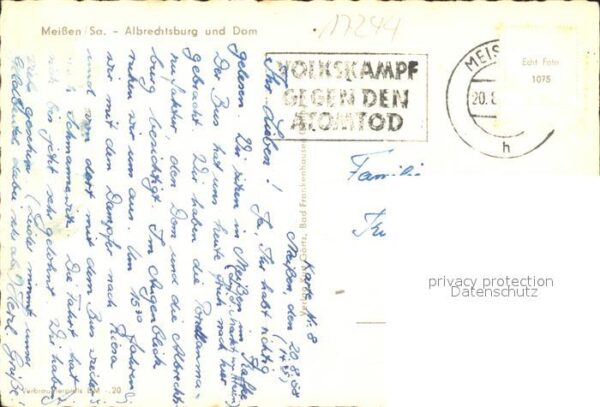 Meißen/Sa. – Albrechtsburg und Dom
17244
VOLKSKAMPF
GEGEN DEN
ATOMTOD
MEIS
20.8
h
Echt Foto
1075
Familie
privacy protection
Datenschutz
Verlag Görtz, Bad Frankenhausen
Karte Nr. 8
Meißen, den 20.8.58
Ihr Lieben! Ja, Ihr habt richtig
gelesen. Wir sitzen in Meißen im Kaffee
Der Bus hat uns heute früh nach hier
gebracht. Wir haben die Porzellanma-
nufaktur, den Dom und die Albrechts-
burg besichtigt. Im Augenblick
ruhen wir uns aus. Um 15³⁰ fahren
wir mit dem Dampfer nach Riesa
und von dort mit dem Bus weiter
nach Die Fahrt hat
sich bis jetzt sehr gelohnt. Wir haben
viel gesehen. nimmt uns
dabei Herzl. Grüße!
Verbraucherpreis DM -.20